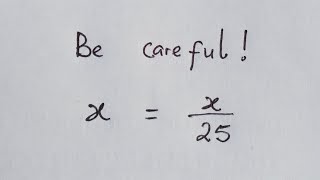 Be careful!
x = x/25